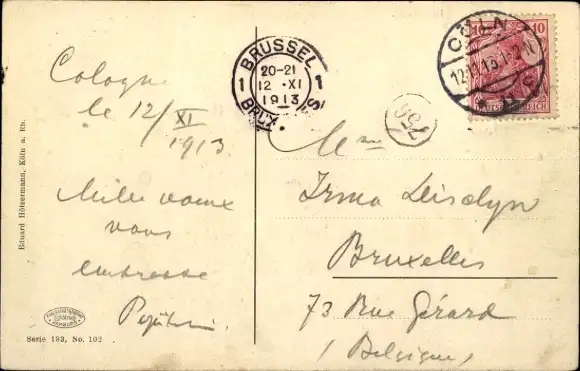 Cologne
le 12/XI
1913
Mille voeux
vous
embrasse
Mme
Irma
Bruxelles
73 Rue Gérard
(Belgique)
BRUSSEL
1 20-21 1
12 XI
1913
BRUX
S
CÖLN
12.11.13.
10 10
DEUTSCHES REICH
Eduard Hölzermann, Köln a. Rh.
Serie 193, No. 102